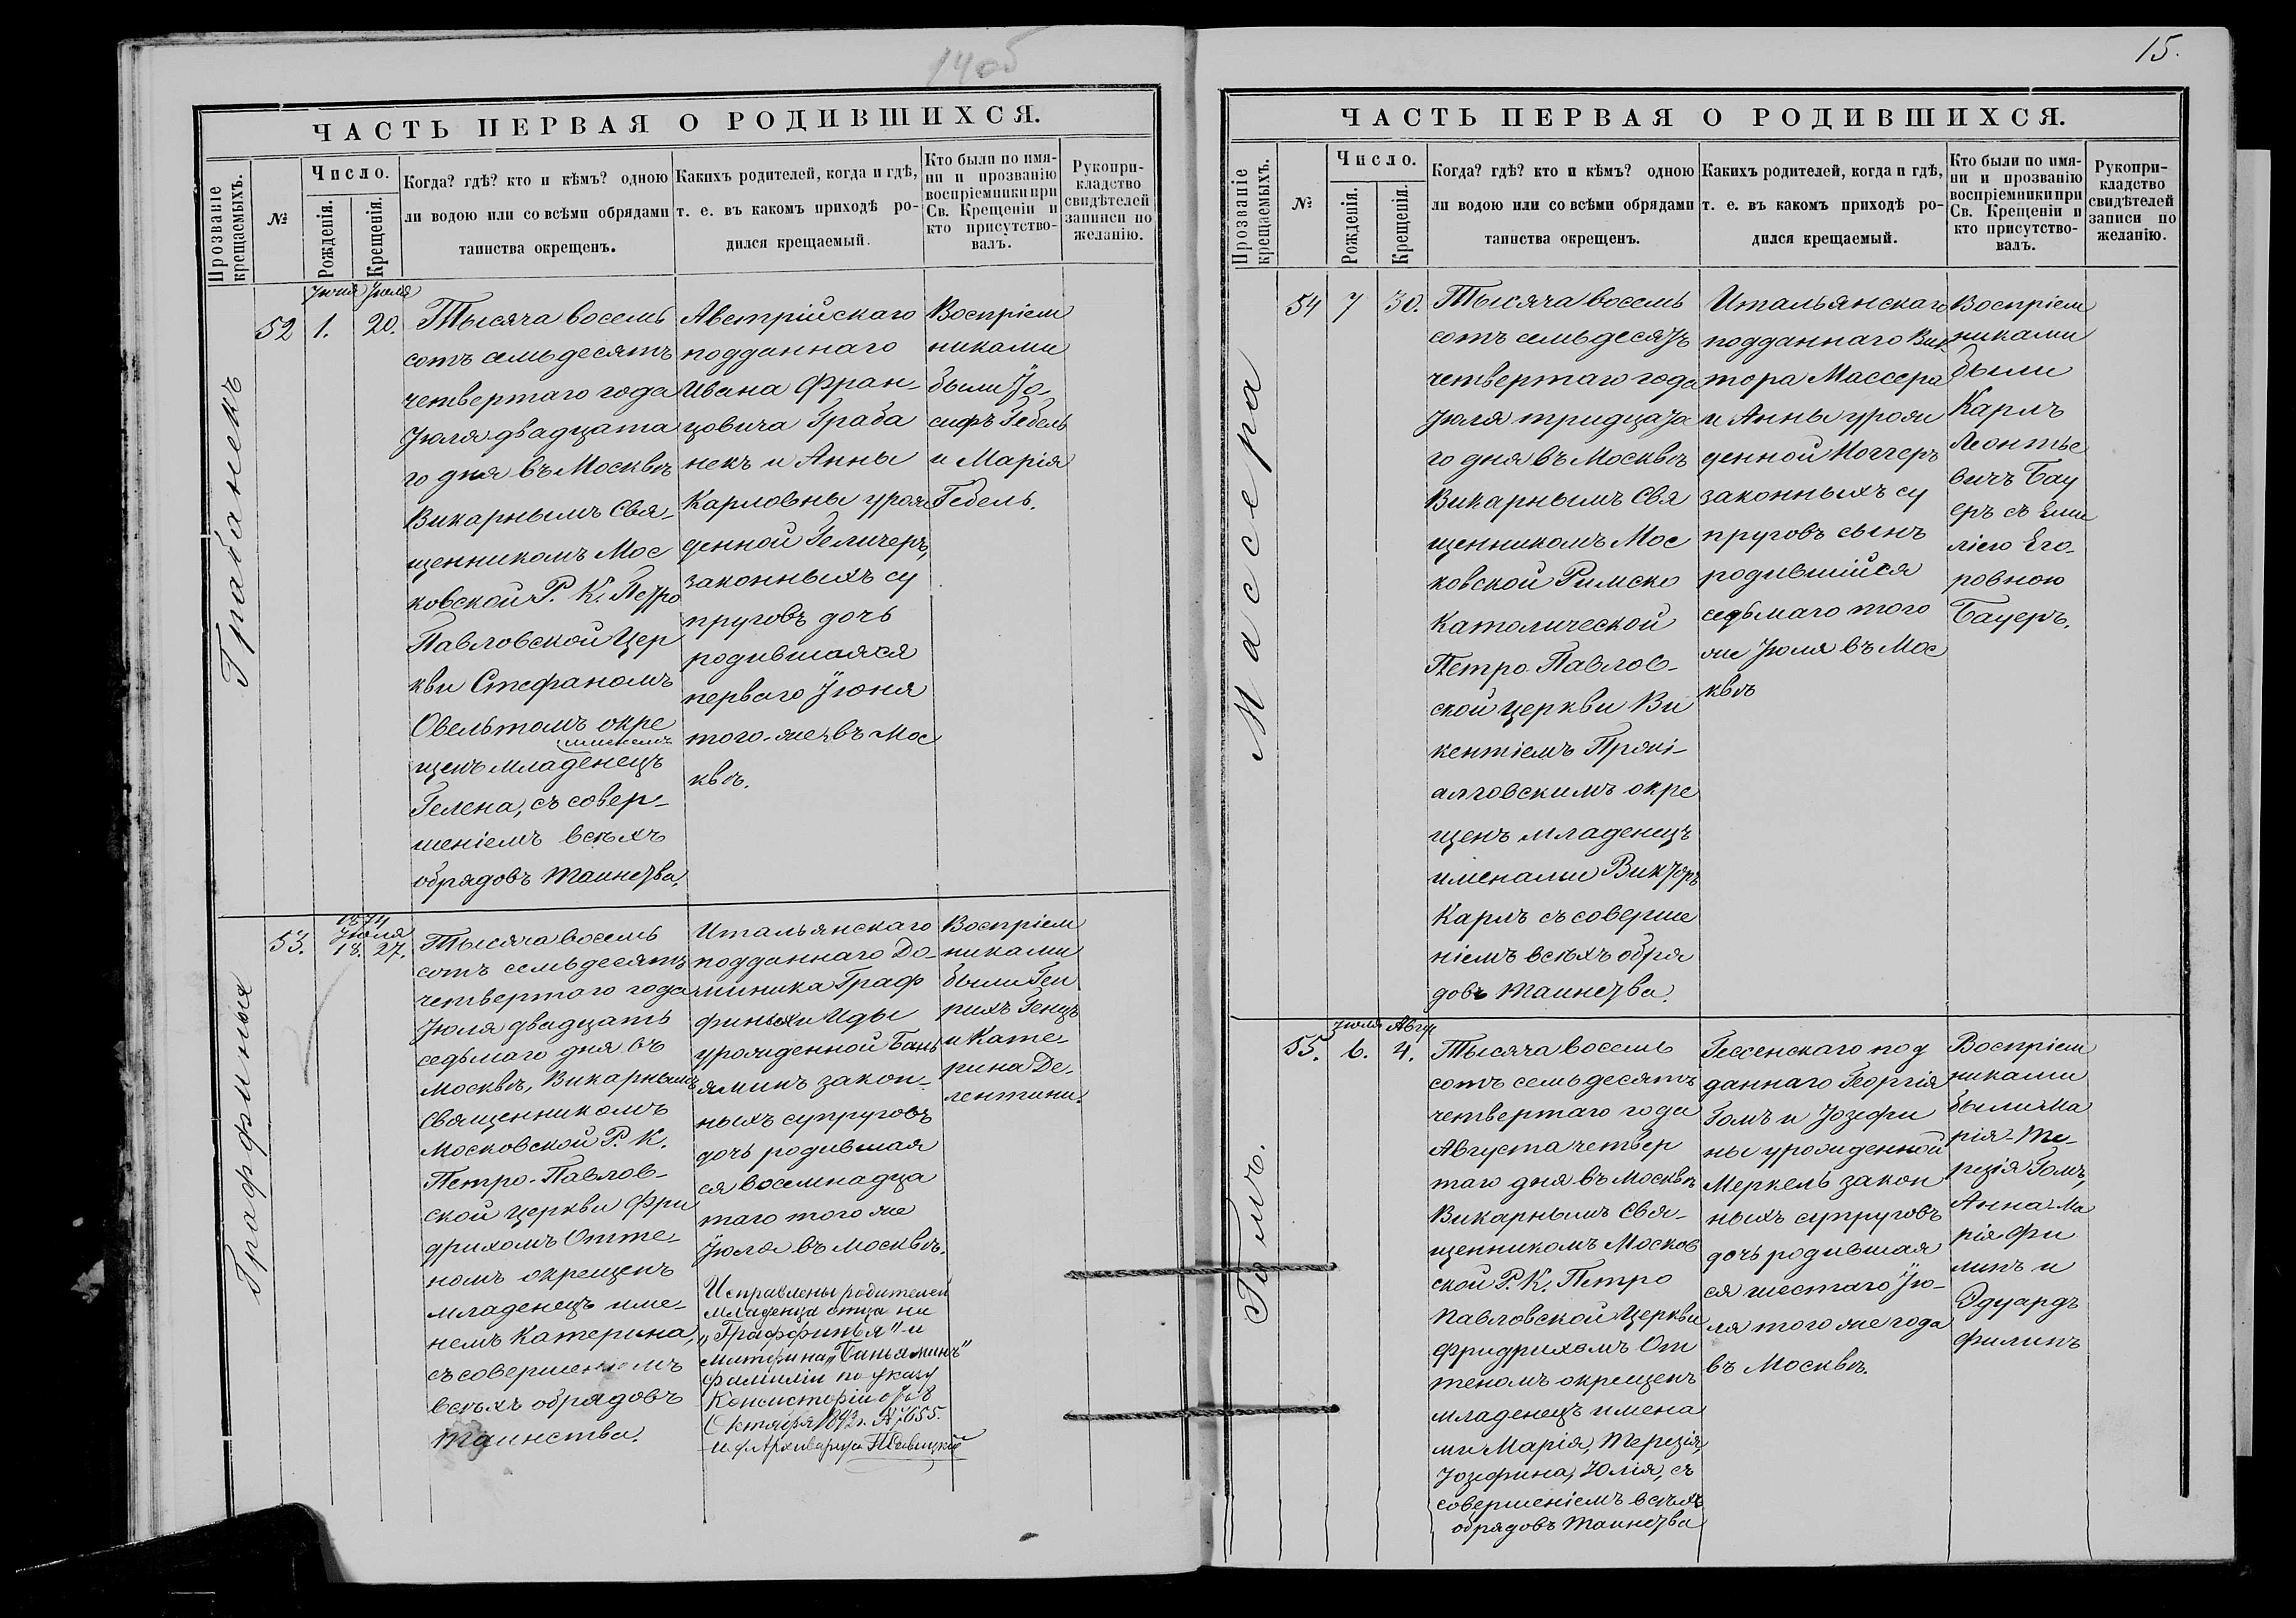 14 об
ЧАСТЬ ПЕРВАЯ О РОДИВШИХСЯ.
Прозваніе
крещаемыхъ.
№
Число.
Рожденія.
Крещенія.
Когда? гдѣ? кто и кѣмъ? одною
ли водою или со всѣми обрядами
таинства окрещенъ.
Какихъ родителей, когда и гдѣ,
т. е. въ какомъ приходѣ ро-
дился крещаемый.
Кто были по имя-
ни и прозванію
воспріемники при
Св. Крещеніи и
кто присутство-
валъ.
Рукопри-
кладство
свидѣтелей
записи по
желанію.
Грабанекъ
52
Іюня Іюля
1. 20.
Тысяча восемь
сотъ семьдесятъ
четвертаго года
Іюля двадцата
го дня въ Москвѣ
Викарнымъ Свя-
щенникомъ Мос
ковской Р. К. Петро
Павловской Цер
кви Стефаномъ
Овельтомъ окре
именемъ
щенъ младенецъ
Гелена, съ совер-
шеніемъ всѣхъ
обрядовъ таинства.
Австрійскаго
подданнаго
Ивана Фран-
цовича Граба
некъ и Анны
Карловны урож
денной Геличеръ
законныхъ су
пруговъ дочь
родившаяся
перваго Іюня
того-же въ Мос
квѣ.
Воспріем
никами
были Іо-
сифъ Гебель
и Марія
Гебель.
Граффиньых
53.
1874
Іюля
18. 27.
Тысяча восемь
сотъ семьдесятъ
четвертаго года
Іюля двадцать
седьмаго дня въ
Москвѣ, Викарнымъ
Священникомъ
Московской Р. К.
Петро-Павлов-
ской церкви Фри
дрихомъ Отте-
номъ окрещенъ
младенецъ име-
немъ Катерина,
съ совершеніемъ
всѣхъ обрядовъ
таинства.
Итальянскаго
подданнаго До-
миника Граф
финьых и Иды
урожденной Бань
яминъ закон-
ныхъ супруговъ
дочь родившая
ся восемнадца
таго того же
Іюля въ Москвѣ.
Исправлены родителей
младенца отца на
„Граффинья" и
матери на „Баньяминъ"
фамиліи по указу
Консисторіи отъ 8
Октября 1893 г. № 7655.
И. д. Архиваріуса
Воспріем
никами
были Ген
рихъ Генцъ
и Кате-
рина Де-
лентини.
15.
ЧАСТЬ ПЕРВАЯ О РОДИВШИХСЯ.
Прозваніе
крещаемыхъ.
№
Число.
Рожденія.
Крещенія.
Когда? гдѣ? кто и кѣмъ? одною
ли водою или со всѣми обрядами
таинства окрещенъ.
Какихъ родителей, когда и гдѣ,
т. е. въ какомъ приходѣ ро-
дился крещаемый.
Кто были по имя-
ни и прозванію
воспріемники при
Св. Крещеніи и
кто присутство-
валъ.
Рукопри-
кладство
свидѣтелей
записи по
желанію.
Массера
54 7 30.
Тысяча восемь
сотъ семьдесятъ
четвертаго года
Іюля тридцата
го дня въ Москвѣ
Викарнымъ Свя
щенникомъ Мос
ковской Римско
Католической
Петро Павлов-
ской церкви Ви
кентіемъ Пржі-
алговскимъ окре
щенъ младенецъ
именами Викторъ
Карлъ съ соверше
ніемъ всѣхъ обря
довъ таинства.
Итальянскаго
подданнаго Вик
тора Массера
и Анны урож
денной Ноггеръ
законныхъ су
пруговъ сынъ
родившійся
седьмаго того
же Іюля въ Мос
квѣ
Воспріем
никами
были
Карлъ
Леонтье
вичъ Бау
еръ съ Эми
ліею Его-
ровною
Бауеръ.
Гомъ.
55.
Іюля Авгу
6. 4.
Тысяча восемь
сотъ семьдесятъ
четвертаго года
Августа четвер
таго дня въ Москвѣ
Викарнымъ Свя-
щенникомъ Москов
ской Р. К. Петро
Павловской Церкви
Фридрихомъ От
теномъ окрещенъ
младенецъ имена
ми Марія, Терезія,
Іозефина, Юлія, съ
совершеніемъ всѣхъ
обрядовъ таинства
Гессенскаго под
даннаго Георгія
Гомъ и Іозефи
ны урожденной
Меркель закон
ныхъ супруговъ
дочь родившая
ся шестаго Ію-
ля того же года
въ Москвѣ.
Воспріем
никами
были Ма
рія-Те-
резія Гомъ,
Анна-Ма
рія Фи
липъ и
Эдуардъ
Филипъ